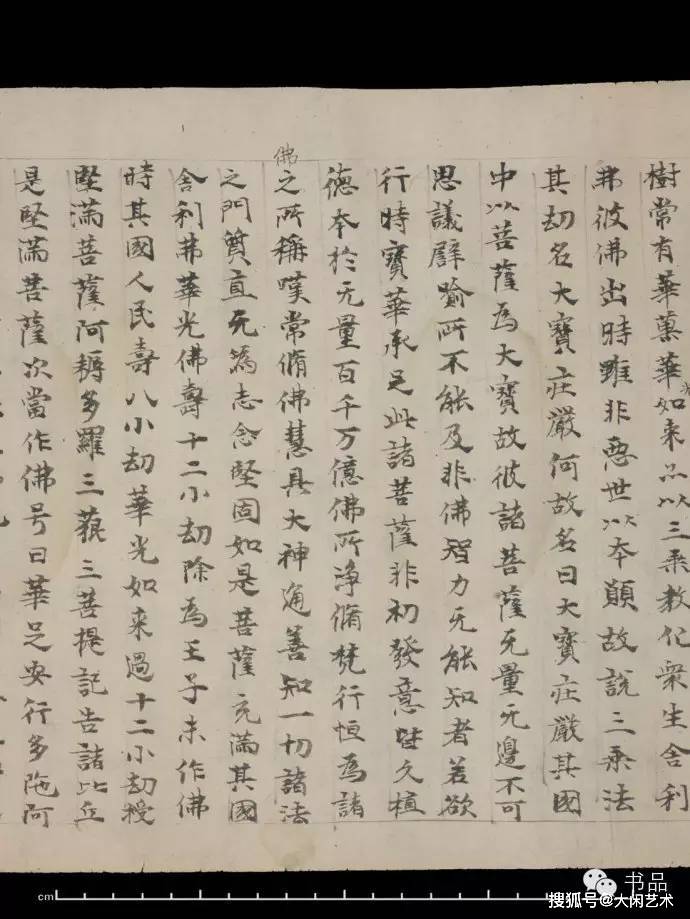 樹常有華菓華光如来亦以三乗教化衆生舍利
弗彼佛出時雖非惡世以本願故說三乗法
其劫名大寶庄嚴何故名曰大寶庄嚴其國
中以菩薩為大寶故彼諸菩薩无量无邊不可
思議辟喻所不能及非佛智力无能知者若欲
行時寶華承足此諸菩薩非初發意皆久植
德本於无量百千万億佛所浄脩梵行恒為諸
佛之所稱嘆常脩佛慧具大神通善知一切諸法
之門質直无為志念堅固如是菩薩充滿其國
舍利弗華光佛壽十二小劫除為王子未作佛
時其國人民壽八小劫華光如来過十二小劫授
堅滿菩薩阿耨多羅三藐三菩提記告諸比丘
是堅滿菩薩次當作佛号曰華足安行多陁阿
cm
书品
搜狐号@大闲艺术